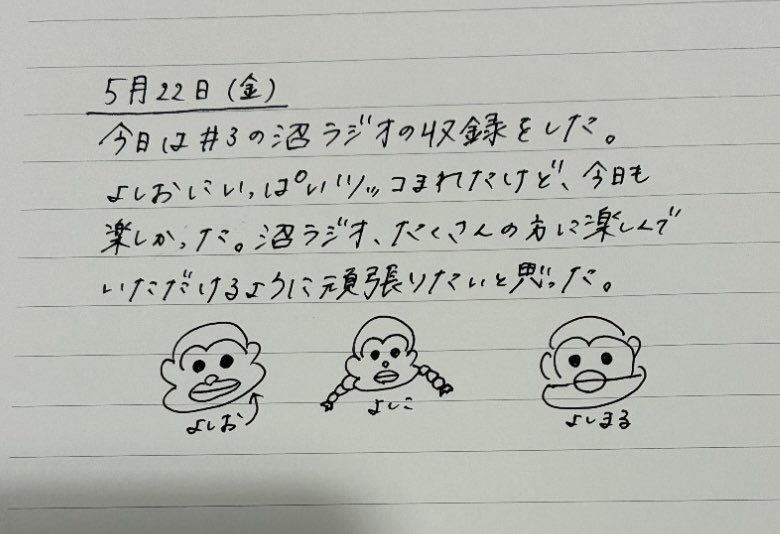 5月22日(金)
今日は#3の沼ラジオの収録をした。
よしおにいっぱいツッコまれたけど、今日も
楽しかった。沼ラジオ、たくさんの方に楽しんで
いただけるように頑張りたいと思った。
よしお
よしこ
よしまる